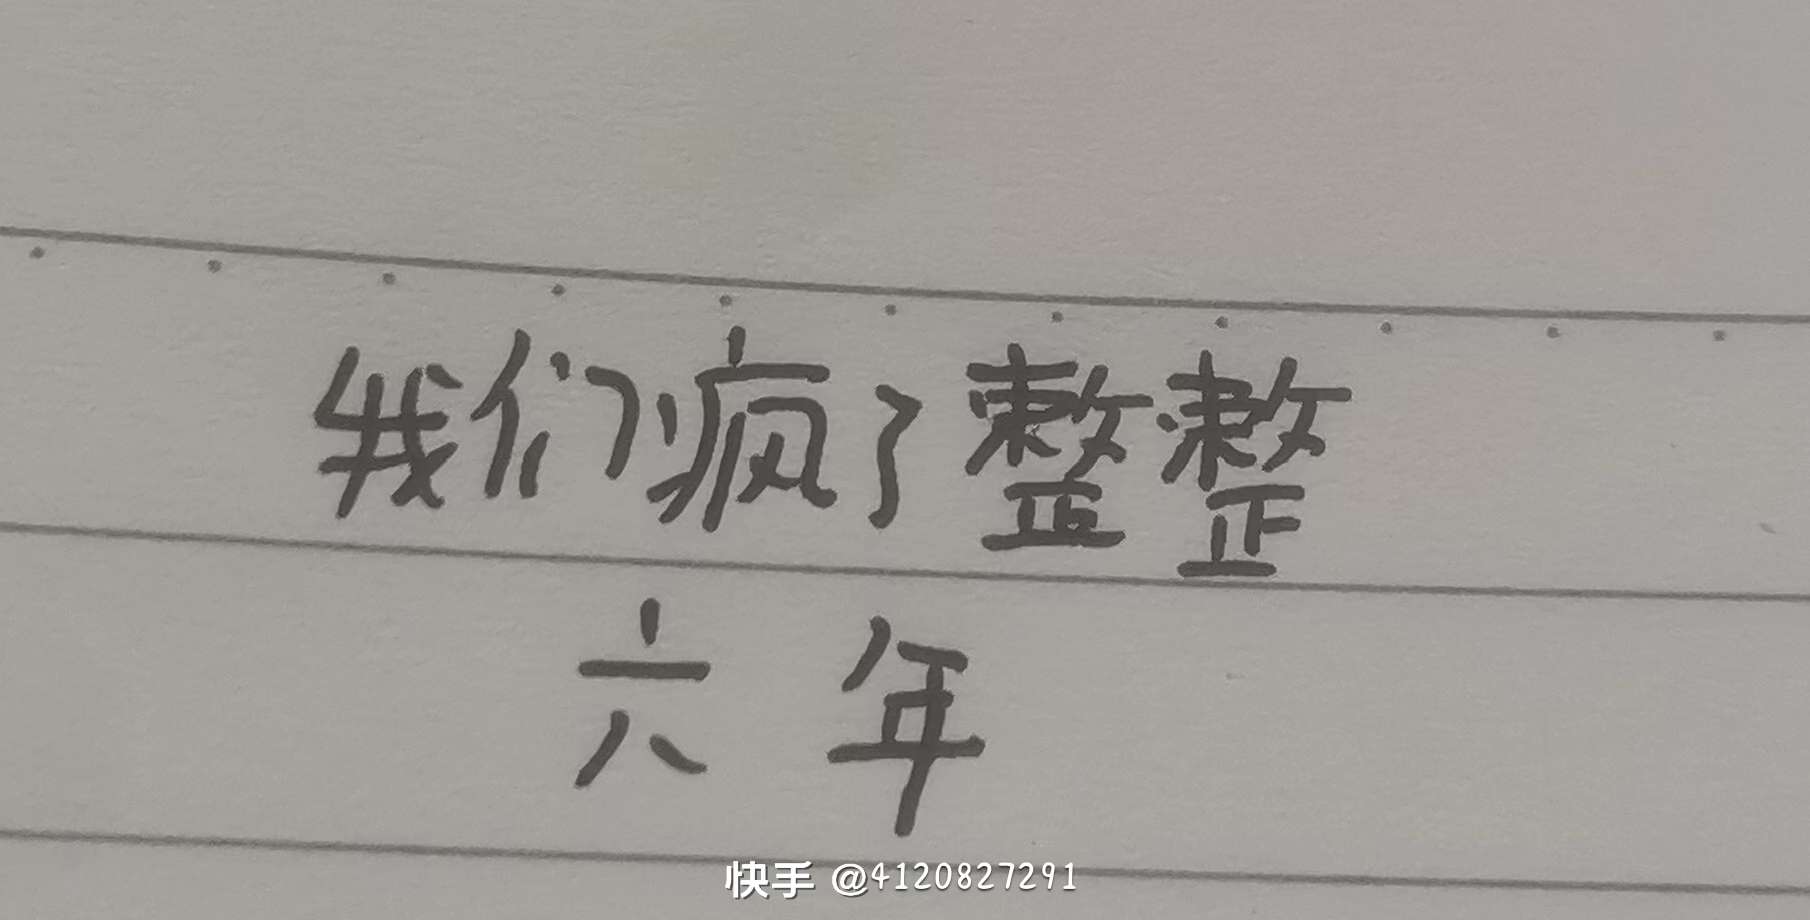 我们疯了整整
六年
快手 @4120827291